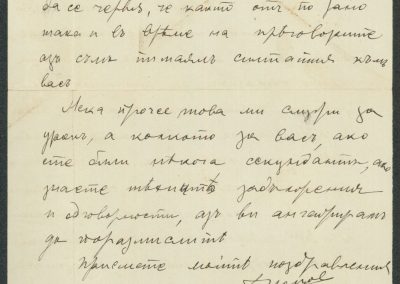 да се червя, че както отъ по рано
така и въ време на преговорите
азъ съмъ ималъ симпатия къмъ
васъ
Нека прочее това ми служи за
урокъ, а колкото за васъ, ако
сте били некога секундантъ, ако
знаете техните задължения
и отговорности, азъ ви ангажирамъ
да поразмислите
Приемете моите поздравления